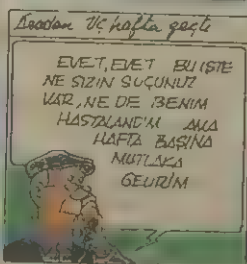 Aradan üç hafta geçti
EVET, EVET BU İŞTE
NE SİZİN SUÇUNUZ
VAR, NE DE BENİM
HASTALANDIM AMA
HAFTA BAŞINA
MUTLAKA
GELİRİM